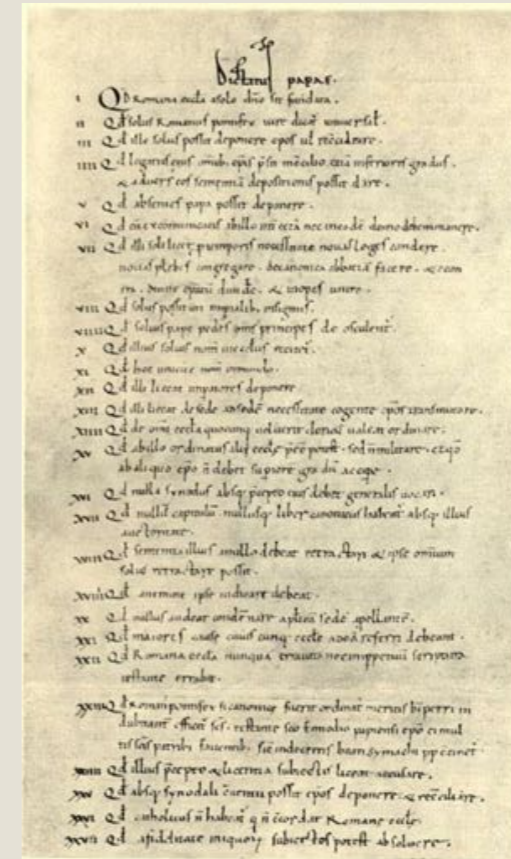 Dictatus papae.
I Qd Romana eccla a solo dno sit fundata.
II Qd solus Romanus pontifex iure dicat universal.
III Qd ille solus possit deponere epos vel reconciliare.
IIII Qd legatus eius omib epis psit in concilio etia inferioris gradus.
& adversus eos sententia depositionis possit dare.
V Qd absentes papa possit deponere.
VI Qd cu excommunicatis ab illo nec in eade domo debemus manere.
VII Qd illi soli licet p temporis necessitate novas leges condere.
novas plebes congregare. de canonica abbatia facere. & econ
tra. divite episcopatu dividere. & inopes unire.
VIII Qd solus possit uti imperialib insigniis.
VIIII Qd solius pape pedes oms principes deosculent.
X Qd illius solius nom in ecclesiis recitet.
XI Qd hoc unicu est nom in mundo.
XII Qd illi liceat imperatores deponere.
XIII Qd illi liceat de sede ad sede necessitate cogente epos transmutare.
XIIII Qd de omi eccla quocunq voluerit clericu valeat ordinare.
XV Qd ab illo ordinatus alii eccle pee potest. sed n militare. et qd
ab aliquo epo n debet superiore gradu accipe.
XVI Qd nulla synodus absq pcepto eius debet generalis vocari.
XVII Qd nullu capitulu nullusq liber canonicus habeat absq illius
auctoritate.
XVIII Qd sententia illius a nullo debeat retractari & ipse omnium
solus retractare possit.
XVIIII Qd a nemine ipse iudicare debeat.
XX Qd nullus audeat condemnare aplica sede apellante.
XXI Qd maiores cause cuiuscunq eccle ad ea referri debeant.
XXII Qd Romana eccla nunqua erravit nec imppetuu scriptura
testante errabit.
XXIII Qd Romanus pontifex si canonice fuerit ordinatus meritis b petri in
dubitant efficit scs. testante sco Ennodio papiensi epo ei mul
tis scis patribs faventib. sic in decretis beati symachi pp continet
XXIIII Qd illius pcepto & licentia subiectis liceat accusare.
XXV Qd absq synodali conventu possit epos deponere & reconciliare.
XXVI Qd catholicus n habeat q n concordat Romane eccle.
XXVII Qd a fidelitate iniquoru subiectos potest absolvere.